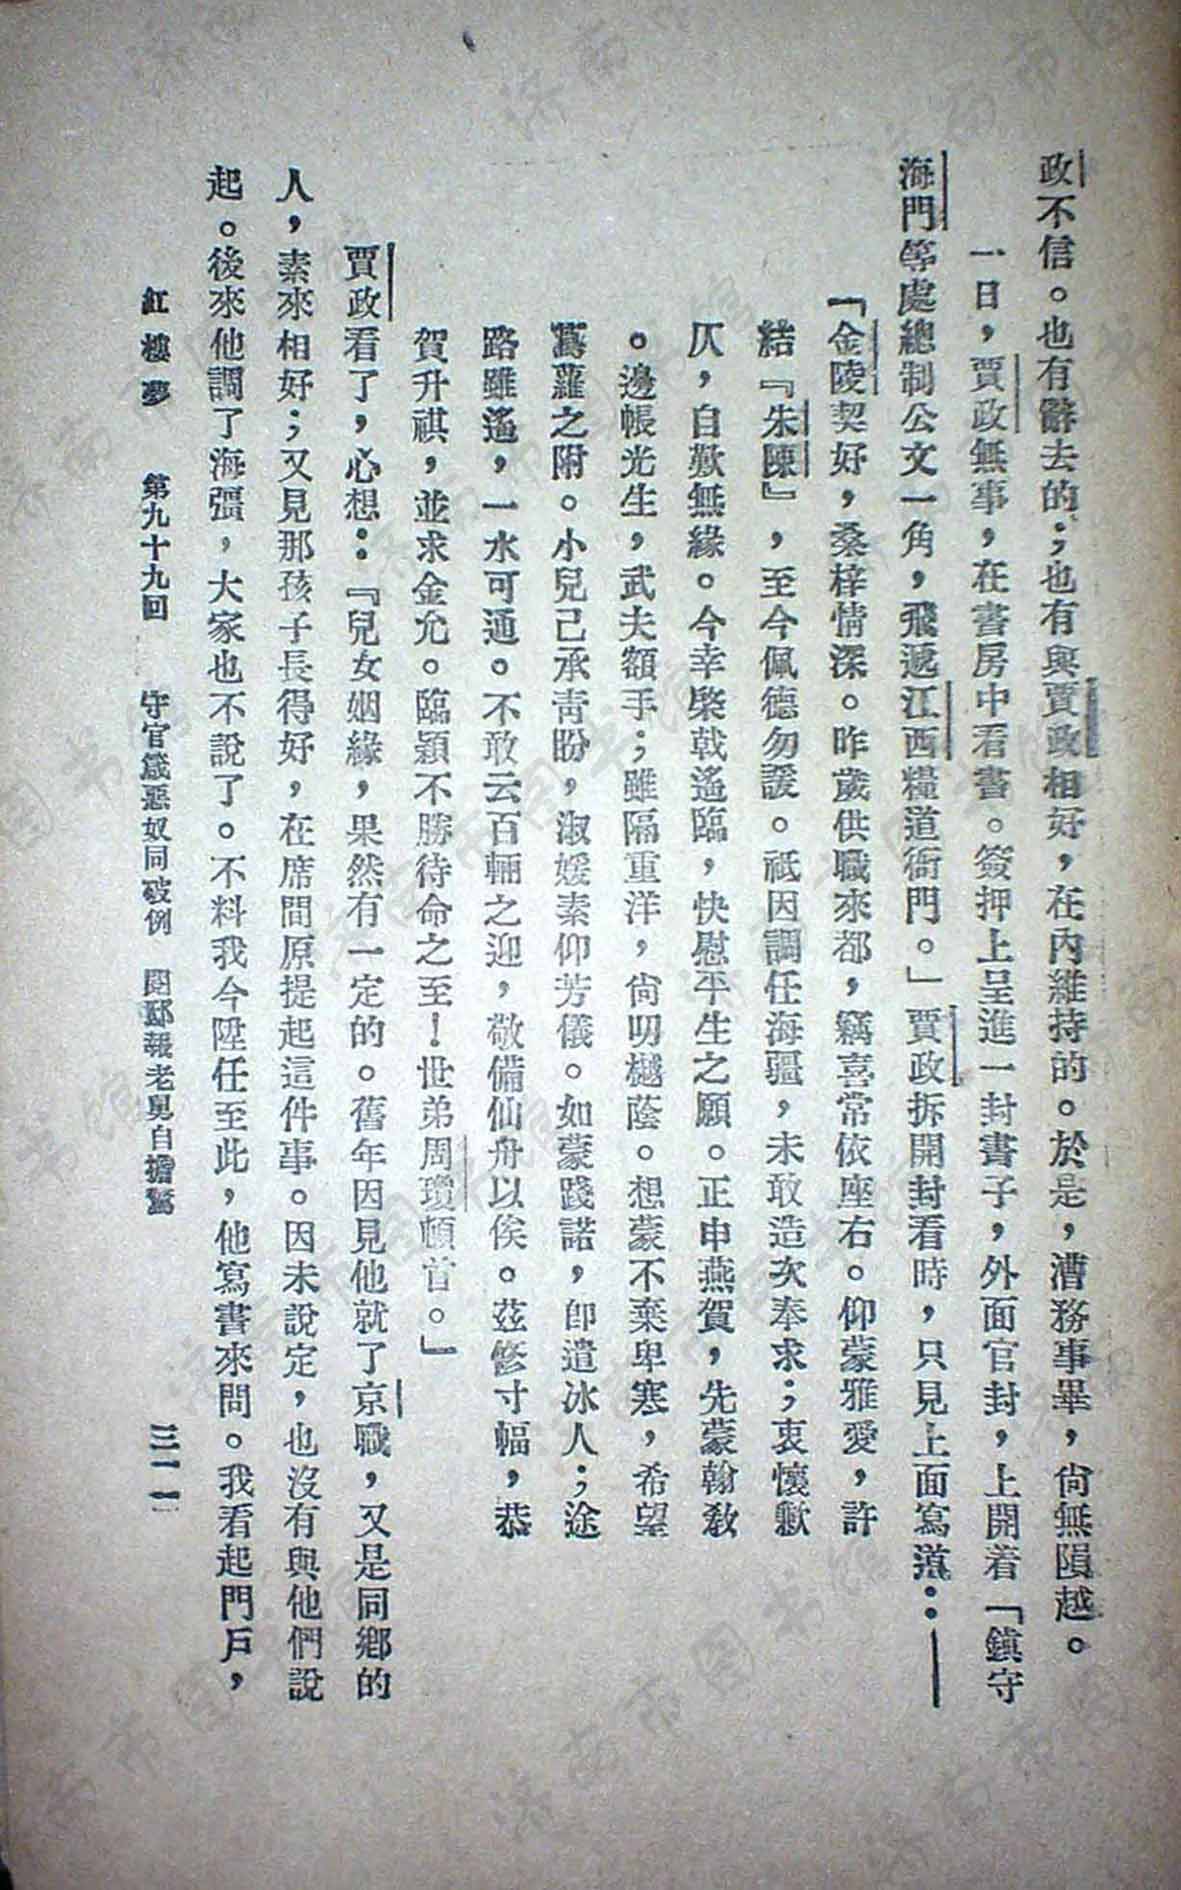 政不信。也有辭去的；也有與賈政相好，在內維持的。於是，漕務事畢，尙無隕越。
一日，賈政無事，在書房中看書。簽押上呈進一封書子，外面官封，上開着「鎮守
海門等處總制公文一角，飛遞江西糧道衙門。」賈政拆開封看時，只見上面寫道：——
「金陵契好，桑梓情深。昨歲供職來都，竊喜常依座右。仰蒙雅愛，許
結『朱陳』，至今佩德勿諼。祗因調任海疆，未敢造次奉求；衷懷歉
仄，自歎無緣。今幸棨戟遙臨，快慰平生之願。正申燕賀，先蒙翰敎
。邊帳光生，武夫額手；雖隔重洋，尙叨樾蔭。想蒙不棄卑寒，希望
蔦蘿之附。小兒已承靑盼，淑媛素仰芳儀。如蒙踐諾，卽遣冰人；途
路雖遙，一水可通。不敢云百輛之迎，敬備仙舟以俟。茲修寸幅，恭
賀升祺，並求金允。臨穎不勝待命之至！世弟周瓊頓首。」
賈政看了，心想：『兒女姻緣，果然有一定的。舊年因見他就了京職，又是同鄉的
人，素來相好；又見那孩子長得好，在席間原提起這件事。因未說定，也沒有與他們說
起。後來他調了海疆，大家也不說了。不料我今陞任至此，他寫書來問。我看起門戶，
紅樓夢 第九十九回 守官箴惡奴同破例 閱邸報老舅自擔驚 三一一
济南市图书馆